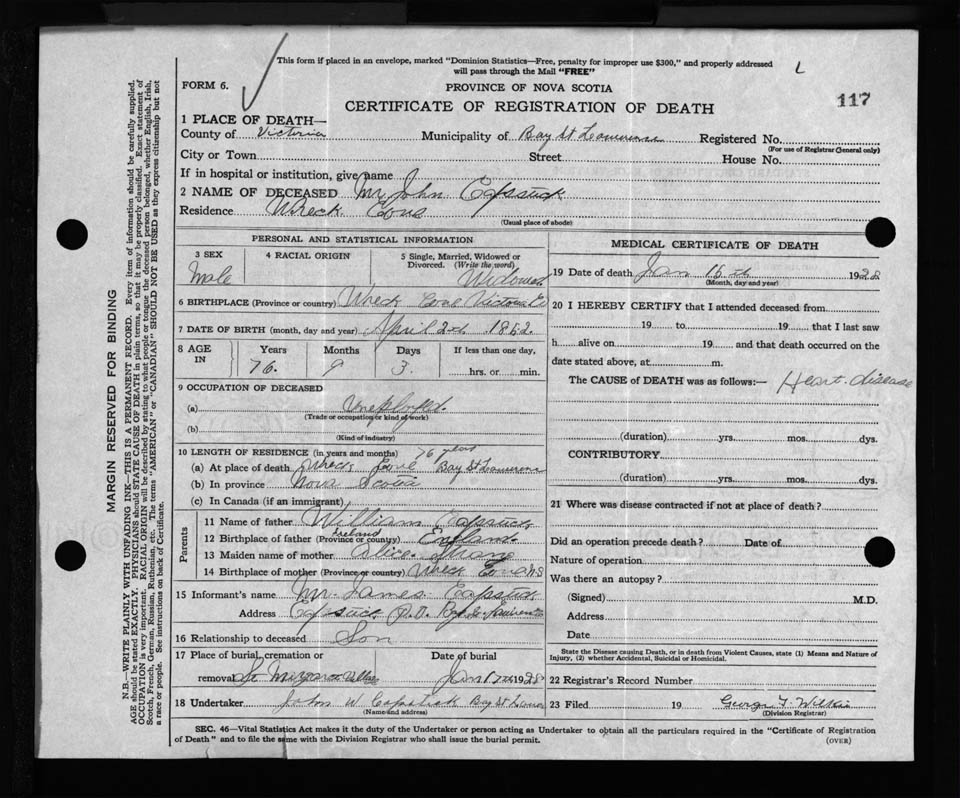 This form if placed in an envelope, marked "Dominion Statistics—Free, penalty for improper use $300," and properly addressed
will pass through the Mail "FREE"
FORM 6.
PROVINCE OF NOVA SCOTIA
117
CERTIFICATE OF REGISTRATION OF DEATH
1 PLACE OF DEATH—
County of Victoria Municipality of Bay St Lawrence Registered No.
(For use of Registrar General only)
City or Town Street House No.
If in hospital or institution, give name
2 NAME OF DECEASED Mr John Capstick
Residence Wreck Cove
(Usual place of abode)
PERSONAL AND STATISTICAL INFORMATION
3 SEX 4 RACIAL ORIGIN 5 Single, Married, Widowed or Divorced. (Write the word)
Male Widowed
6 BIRTHPLACE (Province or country) Wreck Cove Victoria
7 DATE OF BIRTH (month, day and year) April 2nd 1852
8 AGE IN Years Months Days If less than one day,
76. 9 3. hrs. or min.
9 OCCUPATION OF DECEASED
(a) Unemployed
(Trade or occupation or kind of work)
(b)
(Kind of industry)
10 LENGTH OF RESIDENCE (in years and months) 76 years
(a) At place of death Wreck Cove Bay St Lawrence
(b) In province Nova Scotia
(c) In Canada (if an immigrant)
Parents
11 Name of father William Capstick
12 Birthplace of father (Province or country) Ireland England
13 Maiden name of mother Alice
14 Birthplace of mother (Province or country) Wreck Cove NS
15 Informant's name Mr James Capstick
Address Capstick P.O. Bay St Lawrence
16 Relationship to deceased Son
17 Place of burial, cremation or removal St Date of burial Jan 17 1928
18 Undertaker John W Capstick Bay St Lawrence
(Name and address)
MEDICAL CERTIFICATE OF DEATH
19 Date of death Jan 15th 1928
(Month, day and year)
20 I HEREBY CERTIFY that I attended deceased from
19 to 19 that I last saw
h alive on 19 and that death occurred on the
date stated above, at m.
The CAUSE of DEATH was as follows:— Heart disease
(duration) yrs. mos. dys.
CONTRIBUTORY
(duration) yrs. mos. dys.
21 Where was disease contracted if not at place of death?
Did an operation precede death? Date of
Nature of operation
Was there an autopsy?
(Signed) M.D.
Address
Date
State the Disease causing Death, or in death from Violent Causes, state (1) Means and Nature of
Injury, (2) whether Accidental, Suicidal or Homicidal.
22 Registrar's Record Number
23 Filed 19 George F. Wilkie
(Division Registrar)
SEC. 46—Vital Statistics Act makes it the duty of the Undertaker or person acting as Undertaker to obtain all the particulars required in the "Certificate of Registration
of Death" and to file the same with the Division Registrar who shall issue the burial permit.
(OVER)
MARGIN RESERVED FOR BINDING
N.B.—WRITE PLAINLY WITH UNFADING INK—THIS IS A PERMANENT RECORD. Every item of information should be carefully supplied.
AGE should be stated EXACTLY. PHYSICIANS should STATE CAUSE OF DEATH in plain terms, so that it may be properly classified. Exact statement of
OCCUPATION is very important. RACIAL ORIGIN will be described by stating to what people or tongue the deceased person belonged, whether English, Irish,
Scotch, French, German, Russian, Ruthenian, etc. The terms "AMERICAN" or "CANADIAN" SHOULD NOT BE USED as they express citizenship but not
a race or people. See instructions on back of Certificate.